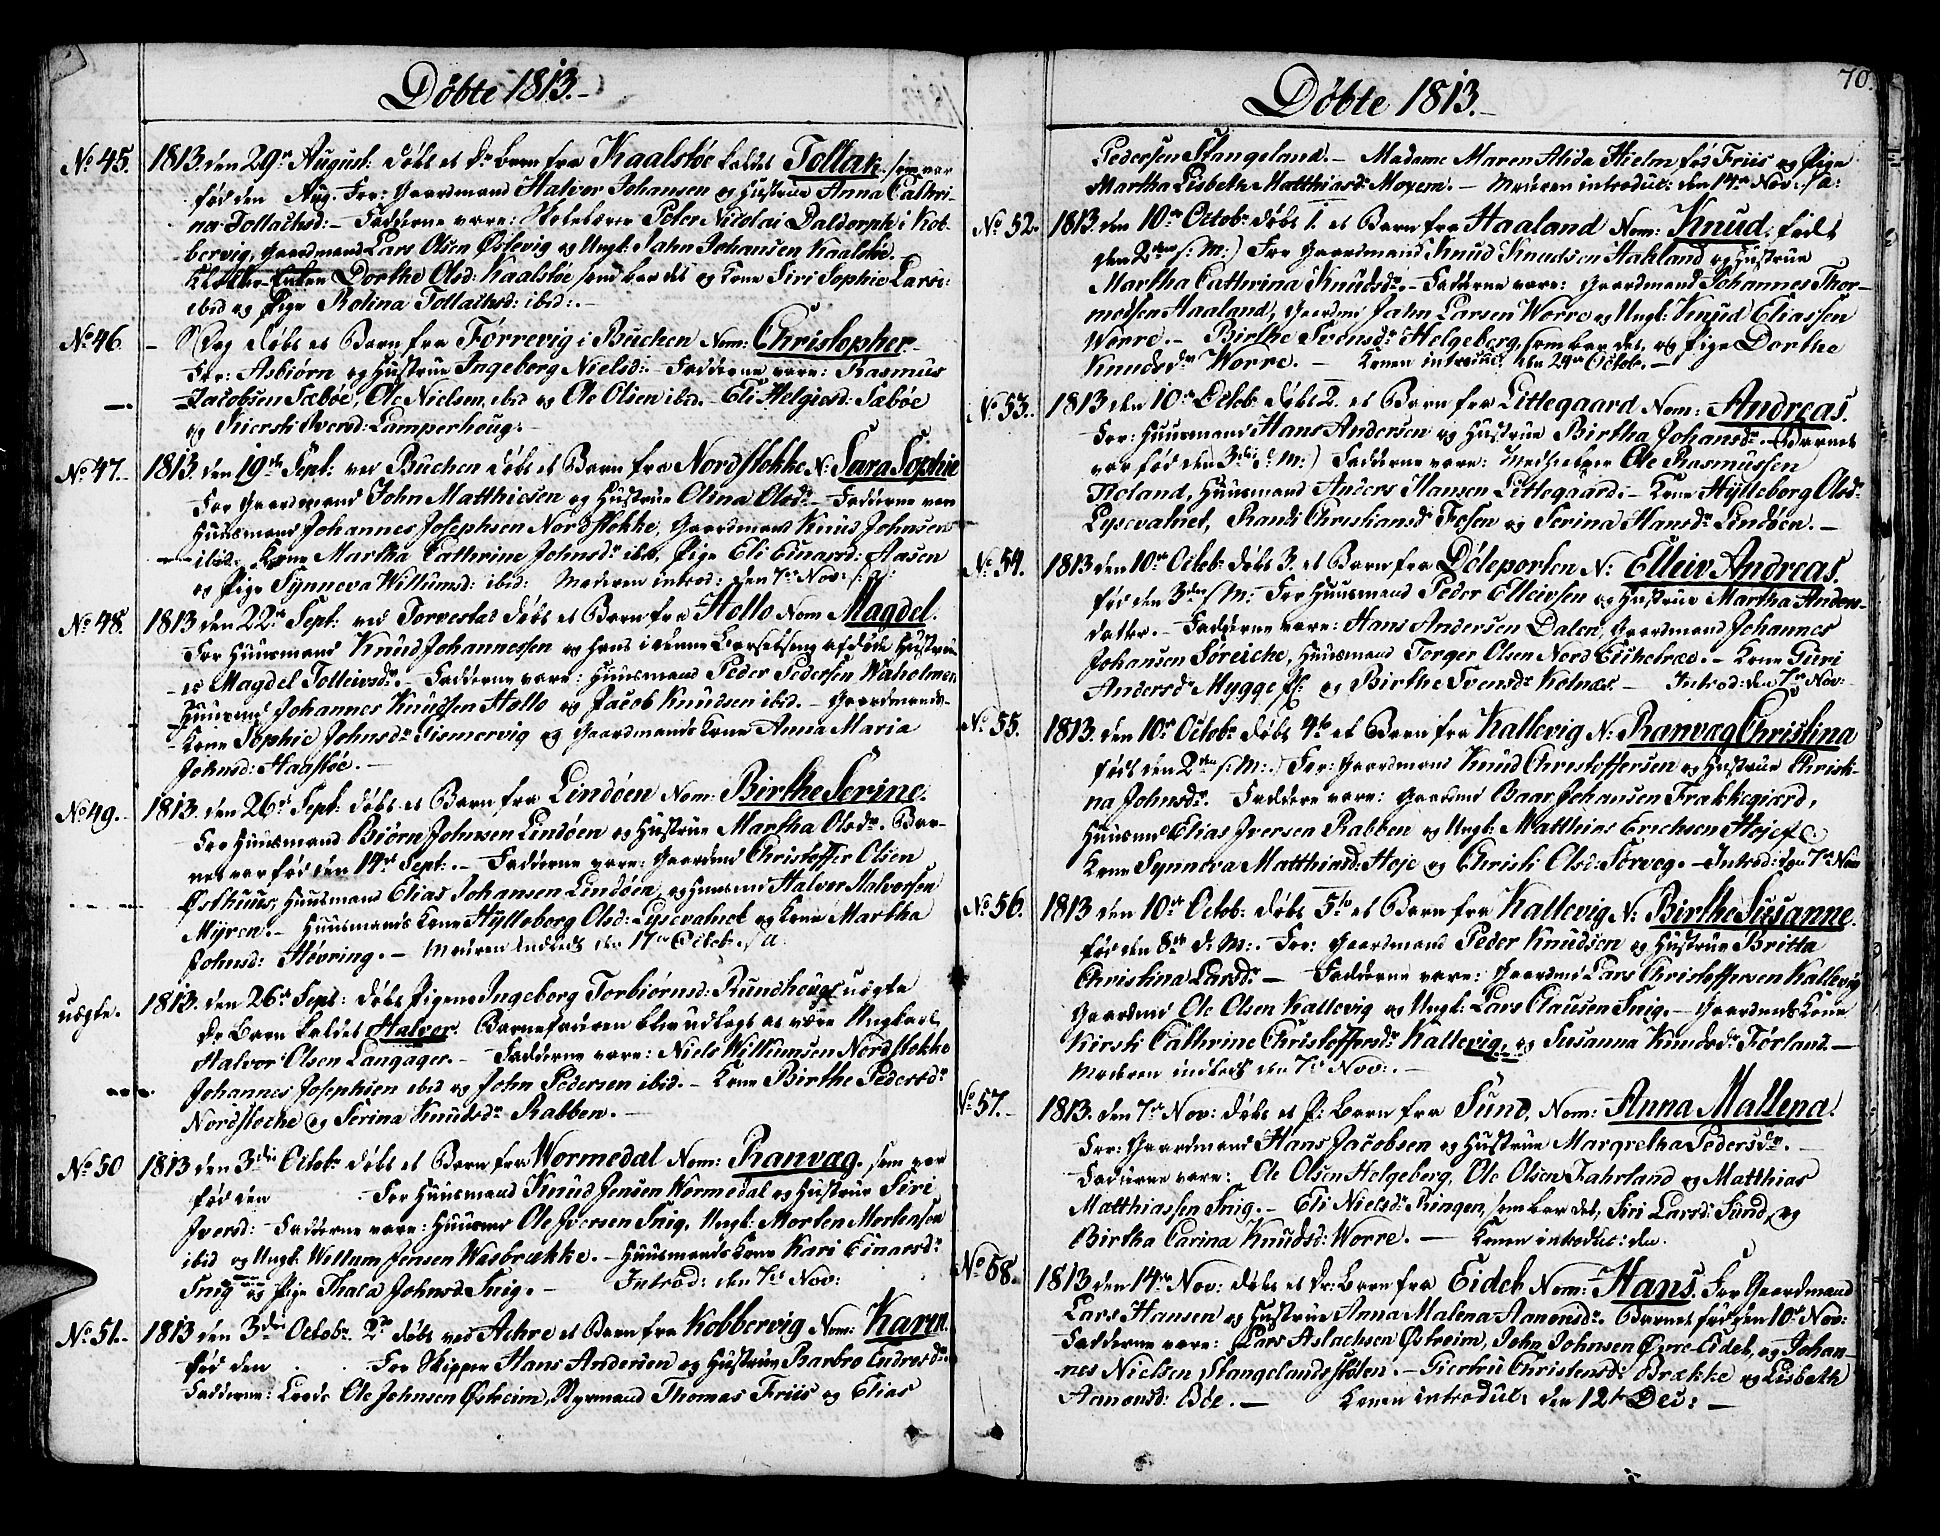 Døbte 1813.-
No 45. 1813. den 29de August: døbt et Dr. barn fra Kaalstøe kaldet Tollak. som var
fød den Aug. For: Gaardmand Halvor Johansen og Hustrue Anna Cathri-
na Tollachsd:- Fadderne vare: Skolelærer Peter Nicolai Daldorph i Kob-
bervig, Gaardmand Lars Olsen Østevig og Ungk: John Johansen Kaalstøe.
Dorthe Olsd: Kaalstøe som bar det og Kone Siri Sophie Larsd:
ibid og Pige Rolina Tollachsd: ibid:-
No 46. - S. Dag døbt et Barn fra Førrevig i Buchen Nom: Christopher.-
For: Asbiørn og Hustrue Ingeborg Nielsd:- Fadderne vare: Rasmus
Jacobsen Sæbøe, Ole Nielsen ibid og Ole Olsen ibid.- Eli Helgiesd: Sæbøe
og Kiersti Iversd: Lamperhoug.-
No 47. 1813. den 19de Sept: ved Buchen døbt et Barn fra Nordstokke N: Sara Sophie
For Gaardmand John Matthiesen og Hustrue Olina Olsdr.- Fadderne vare
Huusmand Johannes Josephsen Nordstokke, Gaardmand Knud Johnsen
ibid.- Kone Martha Cathrine Johnsdr ibid, Pige Eli Einarsd: Aasen
og Pige Synneva Willumsd: ibid: Moderen introd: den 7de Nov:
No 48. 1813 den 22de Sept: ved Torvestad døbt et Barn fra Hollo Nom Magdel.
For Huusmand Knud Johannessen og hans i denne Barselseng afdøde Hustrue
Magdel Tolleivsdr.- Fadderne vare: Huusmand Peder Pedersen Waholmen
Huusmd Johannes Knudsen Hollo og Jacob Knudsen ibid.- Gaardmands-
Kone Sophie Johnsdr Giemervig og Gaardmands Kone Anna Maria
Johnsd: Haastøe.-
No 49. 1813. den 26de Sept: døbt et Barn fra Lindøen Nom: Birthe Serine.
For Huusmand Biørn Johnsen Lindøen og Hustrue Martha Olsdr. Bar-
net var fød den 14de Sept:.- Fadderne vare: Gaardmd Christoffer Olsen
Østhuus, Huusmand Elias Johansen Lindøen, og Huusmd Halvor Halvorsen
Myren.- Huusmands Kone Hylleborg Olsd: Lysevatnet og Kone Martha
Johnsd: Høvring.- Moderen indledt den 17de Octob.
uægte. 1813. den 26de Sept: døbt Pigens Ingeborg Torbiørnsd: Rundhougs uægte
Dr. Barn kaldet Halvor. Barnefaderen blev udlagt at være Ungkarl
Halvor Olsen Langager.- Fadderne vare: Niels Willumsen Nordstokke
Johannes Josephsen ibid og John Pedersen ibid.- Kone Birthe Pedersdr
Nordstocke og Serina Knudsdr Rabben.-
No 50 1813 den 3die Octobr døbt et Barn fra Wormedal Nom: Ranvæg. som var
fød den - For Huusmand Knud Jensen Wormedal og Hustrue Siri
Iversd:- Fadderne vare: Huusmd Ole Iversen Snig, Ungk: Morten Mortensen
ibid og Ungk: Willum Jensen Wasbrække.- Huusmands Kone Kari Einarsdr
Snig og Pige Thala Johnsd Snig.- Introd: den 7de Nov:
No 51.- 1813 den 3die Octobr. 2. døbt ved Achre et Barn fra Kobbervig Nom: Karen.
fød den . . For Skipper Hans Andersen og Hustrue Barbro Endresdr.
Fadderne: Lods Ole Johnsen Østreim, Styrmand Thomas Friis og Elias
Døbte 1813.-
70.
Pedersen Stangeland.- Madame Maren Alida Hielm fød Friis og Pige
Martha Lisbeth Matthiasdr Moxem.- Moderen introduc: den 14de Nov:
No 52.- 1813. den 10de Octobr døbt 1. et Barn fra Haaland Nom: Knud, født
den 2den s: M:) For Gaardmand Knud Knudsen Haaland og Hustrue
Martha Cathrina Knudsdr.- Fadderne vare: Gaardmand Johannes Thor-
modsen Haaland, Gaardmd John Larsen Worre og Ungk: Knud Eliassen
Worre.- Birthe Svensdr Helgeberg, som bar det, og Pige Dorthe
Knudsdr Worre.- Konen introduc. den 24de Octob.-
No 53. 1813 den 10de Octob. døbt 2. et Barn fra Littegaard Nom: Andreas.
For: Huusmand Hans Andersen og Hustrue Birtha Johansdr.- Barnet
var fød den 3die s: M:) Fadderne vare: Medhielper Ole Rasmussen
Roland, Huusmand Anders Hansen Littegaard:- Kone Hylleborg Olsdr
Lysevatnet, Randi Christiansd: Fosen og Serina Hansdr Lindøen.-
No 54. 1813 den 10de Octob. døbt 3. et Barn fra Døleporten N: Elleiv Andreas.
fød den 3die s: M:- For Huusmand Peder Elleivsen og Hustrue Martha Anders-
datter.- Fadderne vare: Hans Andersen Dalen, Gaardmand Johannes
Johansen Søreiche, Huusmand Torger Olsen Nord Lithelræe.- Kone Guri
Andersdr Mygge og Birthe Svensdr Kolnæs.- Introd: den 7de Nov:-
No 55. 1813. den 10de Octobr døbt 4de et Barn fra Kallevig N: Ranvæg Christina
født den 2den s: M:.) For: Gaardmand Knud Christoffersen og Hustrue Christi-
na Johnsdr. Faddere vare: Gaardmd Baar Johansen Frakkegiærd,
Huusmd Elias Iversen Rabben og Ungk: Matthias Erichsen Høje
Kone Synneva Matthiasd: Høje og Christi Olsd: Sørvæg.- Introd: den 7de Nov
No 56. 1813 den 10de Octob: døbt 5te et Barn fra Kallevig N: Birthe Susanne.
fød den 8de d: M:. For: Gaardmand Peder Knudsen og Hustrue Britta
Christina Larsdr.- Fadderne vare: Gaardmd Lars Christoffersen Kallevig
Gaardmd Ole Olsen Kallevig og Ungk: Lars Clausen Snig.- Gaardmds Kone
Kirsti Cathrine Christoffersdr Kallevig, og Susanna Knudsdr Førland.-
Moderen indledt den 7de Nov:.-
No 57.- 1813. den 7de Nov: døbt et P: barn fra Sund, Nom: Anna Mallena.
For: Gaardmand Hans Jacobsen og Hustrue Margretha Pedersdr.-
Fadderne vare: Ole Olsen Helgeberg, Ole Olsen Fahrland og Matthias
Matthiassen Snig.- Eli Nielsdr Ringen, som bar det, Siri Larsd: Sund, og
Birtha Carina Knudsd: Worre.- Konen introduc: den.
No 58. 1813 den 14de Nov: døbt et Dr. barn fra Eideb Nom: Hans. For Gaardmand
Lars Hansen og Hustrue Anna Malena Aamondsdr. Barnet fød den 10de Nov:
Fadderne vare: Lars Aslachsen Østreim, John Johnsen Øvre-Eideb, og Johan-
nes Nielsen Stangelandsstølen.- Giertru Christensd: Brække og Lisbeth
Aamonsd: Bøe.- Konen introduc: den 12te Dec:-